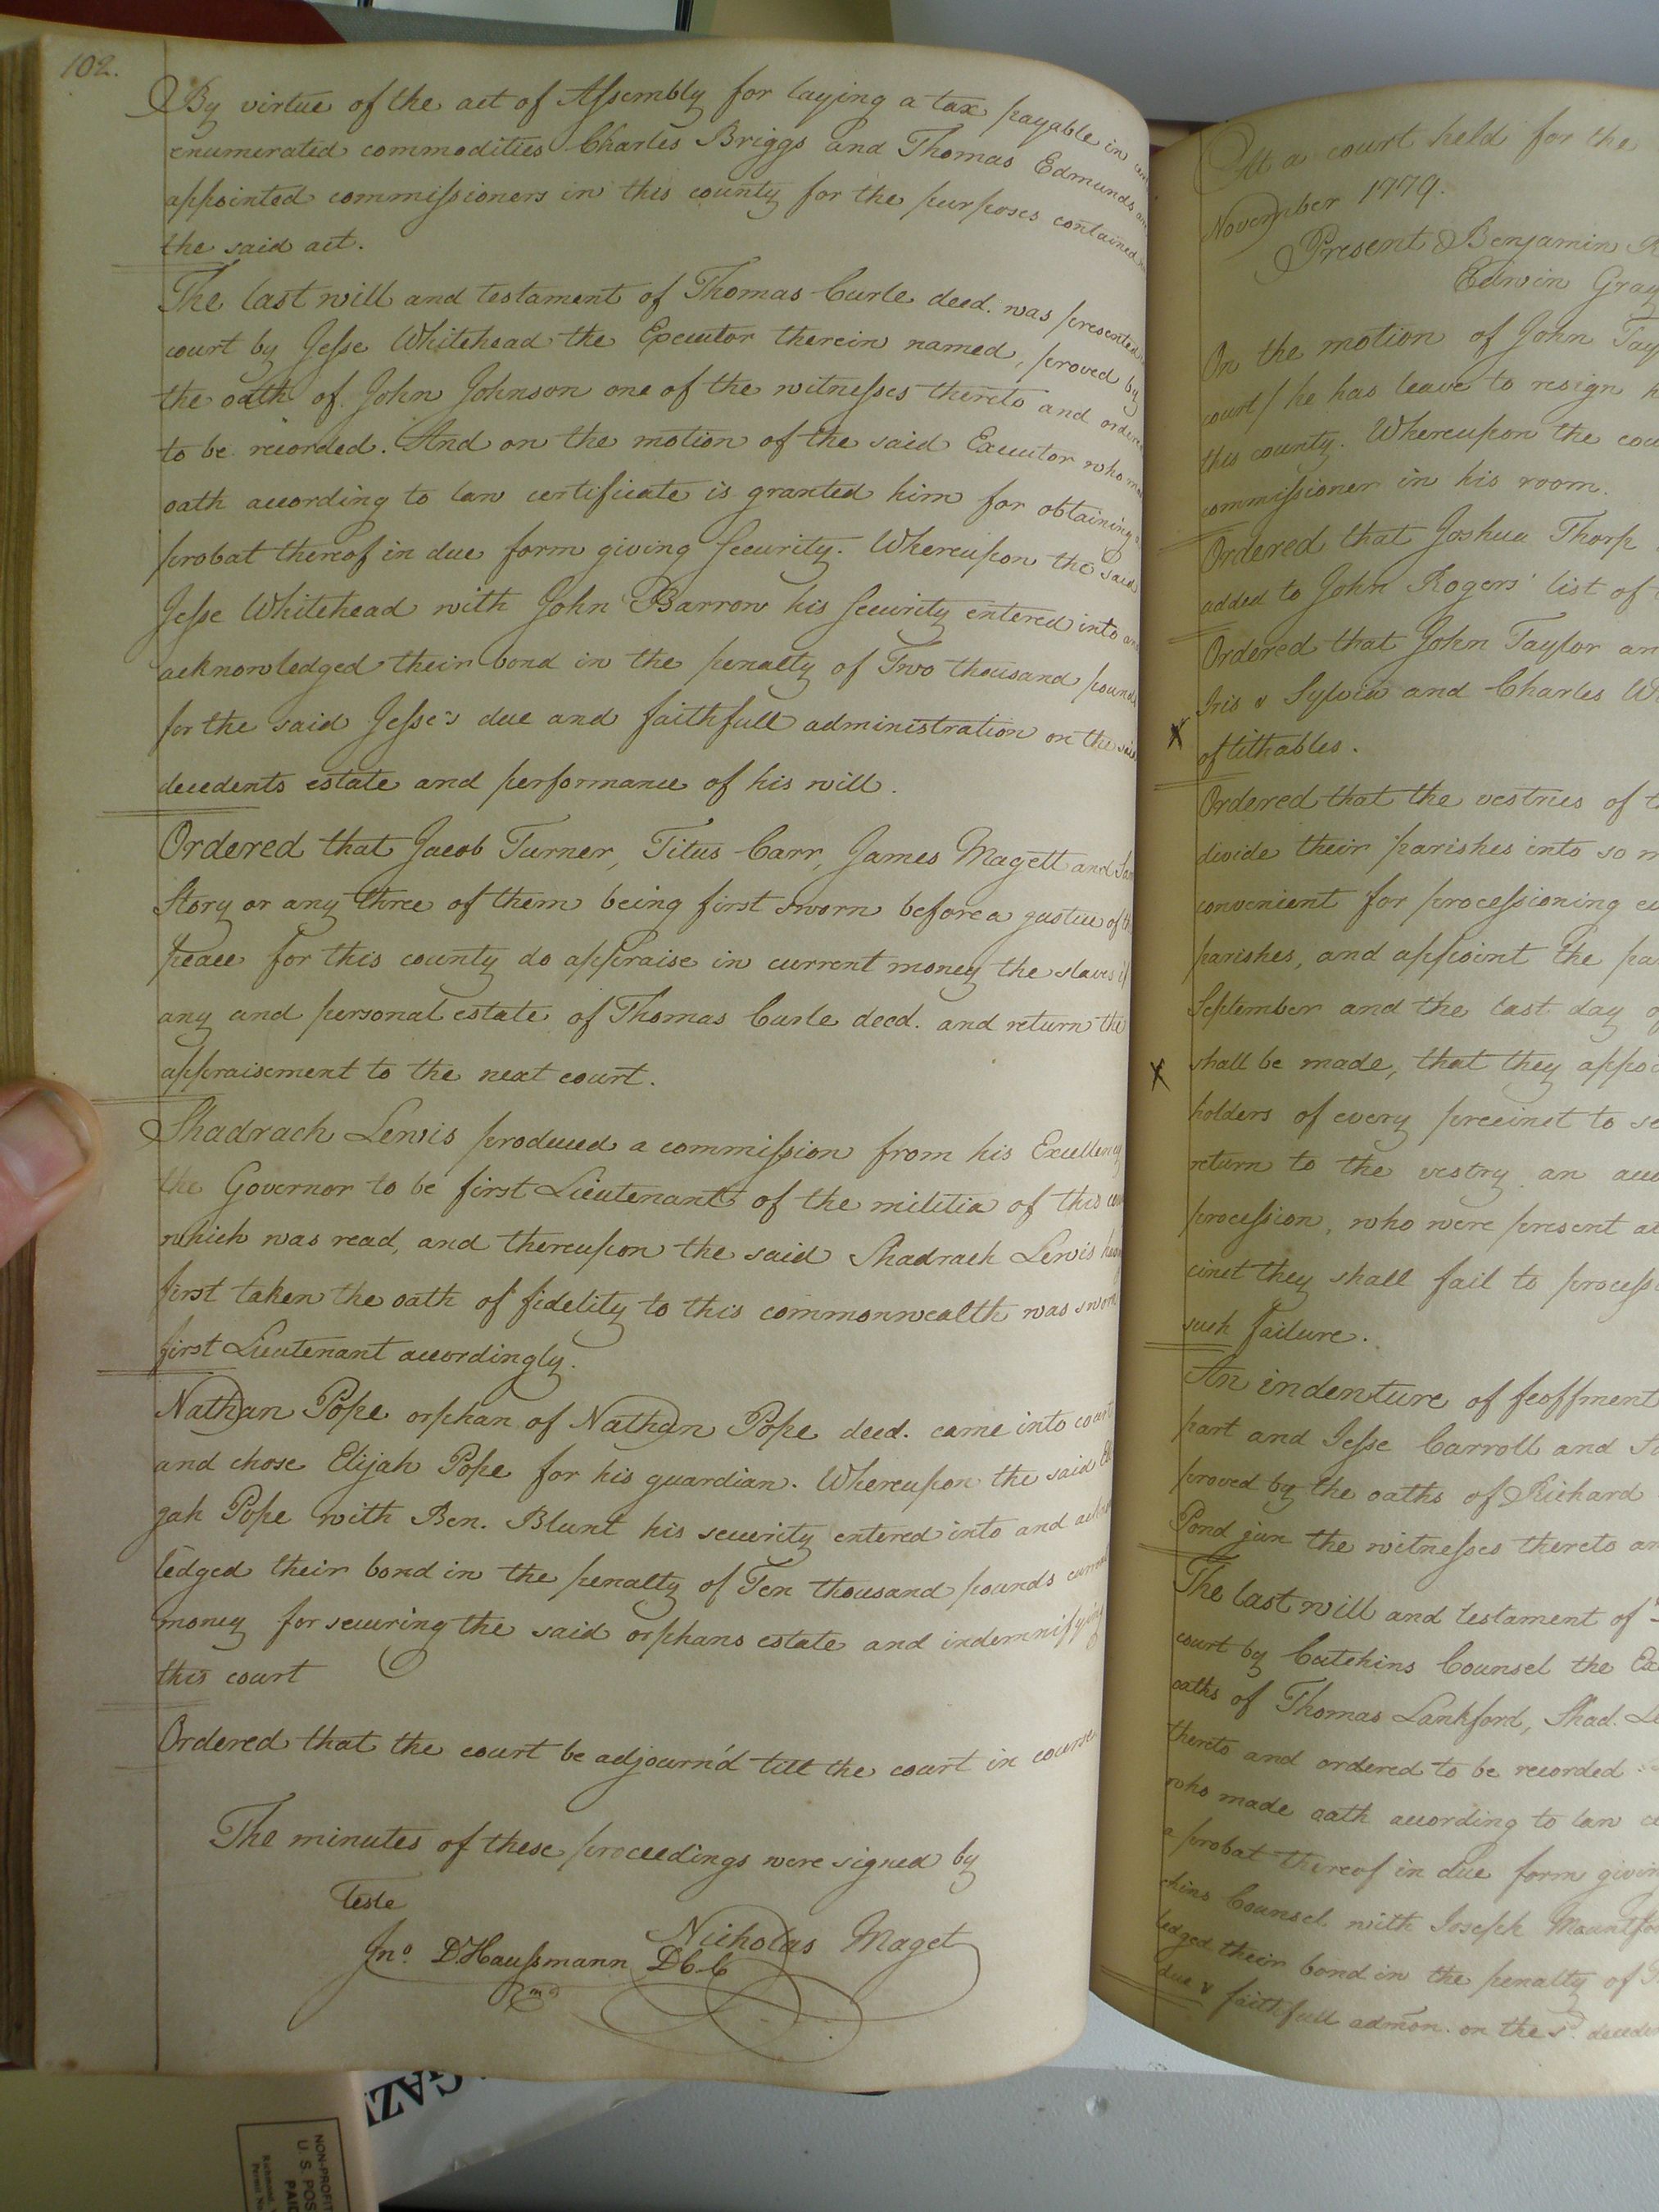 102.
By virtue of the act of Assembly for laying a tax payable in
enumerated commodities Charles Briggs and Thomas Edmunds
appointed commissioners in this county for the purposes contained
the said act.
The last will and testament of Thomas Curle deed. was presented
court by Jesse Whitehead the Executor therein named, proved by
the oath of John Johnson one of the witnesses thereto and ordered
to be recorded. And on the motion of the said Executor who
oath according to law certificate is granted him for obtaining
probat thereof in due form giving security. Whereupon the said
Jesse Whitehead with John Barrow his security entered into
acknowledged their bond in the penalty of Two thousand pounds
for the said Jesse's due and faithfull administration on the
decedents estate and performance of his will.
Ordered that Jacob Turner, Titus Carr, James Magett and
Story or any three of them being first sworn before a justice of
peace for this county do appraise in current money the slaves if
any and personal estate of Thomas Curle deed. and return the
appraisement to the next court.
Shadrach Lewis produced a commission from his Excellency
the Governor to be first Lieutenant of the militia of this
which was read, and thereupon the said Shadrach Lewis
first taken the oath of fidelity to this commonwealth was sworn
first Lieutenant accordingly.
Nathan Pope orphan of Nathan Pope deed. came into court
and chose Elijah Pope for his guardian. Whereupon the said Eli
jah Pope with Ben. Blunt his security entered into and
ledged their bond in the penalty of Ten thousand pounds
money for securing the said orphans estate and indemnifying
this court
Ordered that the court be adjourn'd till the court in course
The minutes of these proceedings were signed by
Teste
Nicholas Maget
Jno. D. Haussmann DCC
At a court held for the
November 1779.
Present Benjamin
Edwin Gray
On the motion of John
court / he has leave to resign
this county. Whereupon the
commissioner in his room.
Ordered that Joshua Thorp
added to John Rogers' list of
Ordered that John Taylor
Iris & Sylvia and Charles
X
of tithables.
Ordered that the vestries of
divide their parishes into so
convenient for processioning
parishes, and appoint the
September and the last day
X
shall be made, that they
holders of every precinct to
return to the vestry an
procession, who were present
cinct they shall fail to
such failure.
An indenture of feoffment
part and Jesse Carroll and
proved by the oaths of Richard
Pond jun the witnesses thereto
The last will and testament of
court by Cutchins Counsel the
oaths of Thomas Lankford, Shad.
thereto and ordered to be recorded
who made oath according to law
a probat thereof in due form
chins Counsel with Joseph
ledged their bond in the penalty of
due & faithfull admon. on the sd.
GAZ
NON-PROFIT
U. S. POS
PAID
Richmond,
Permit No